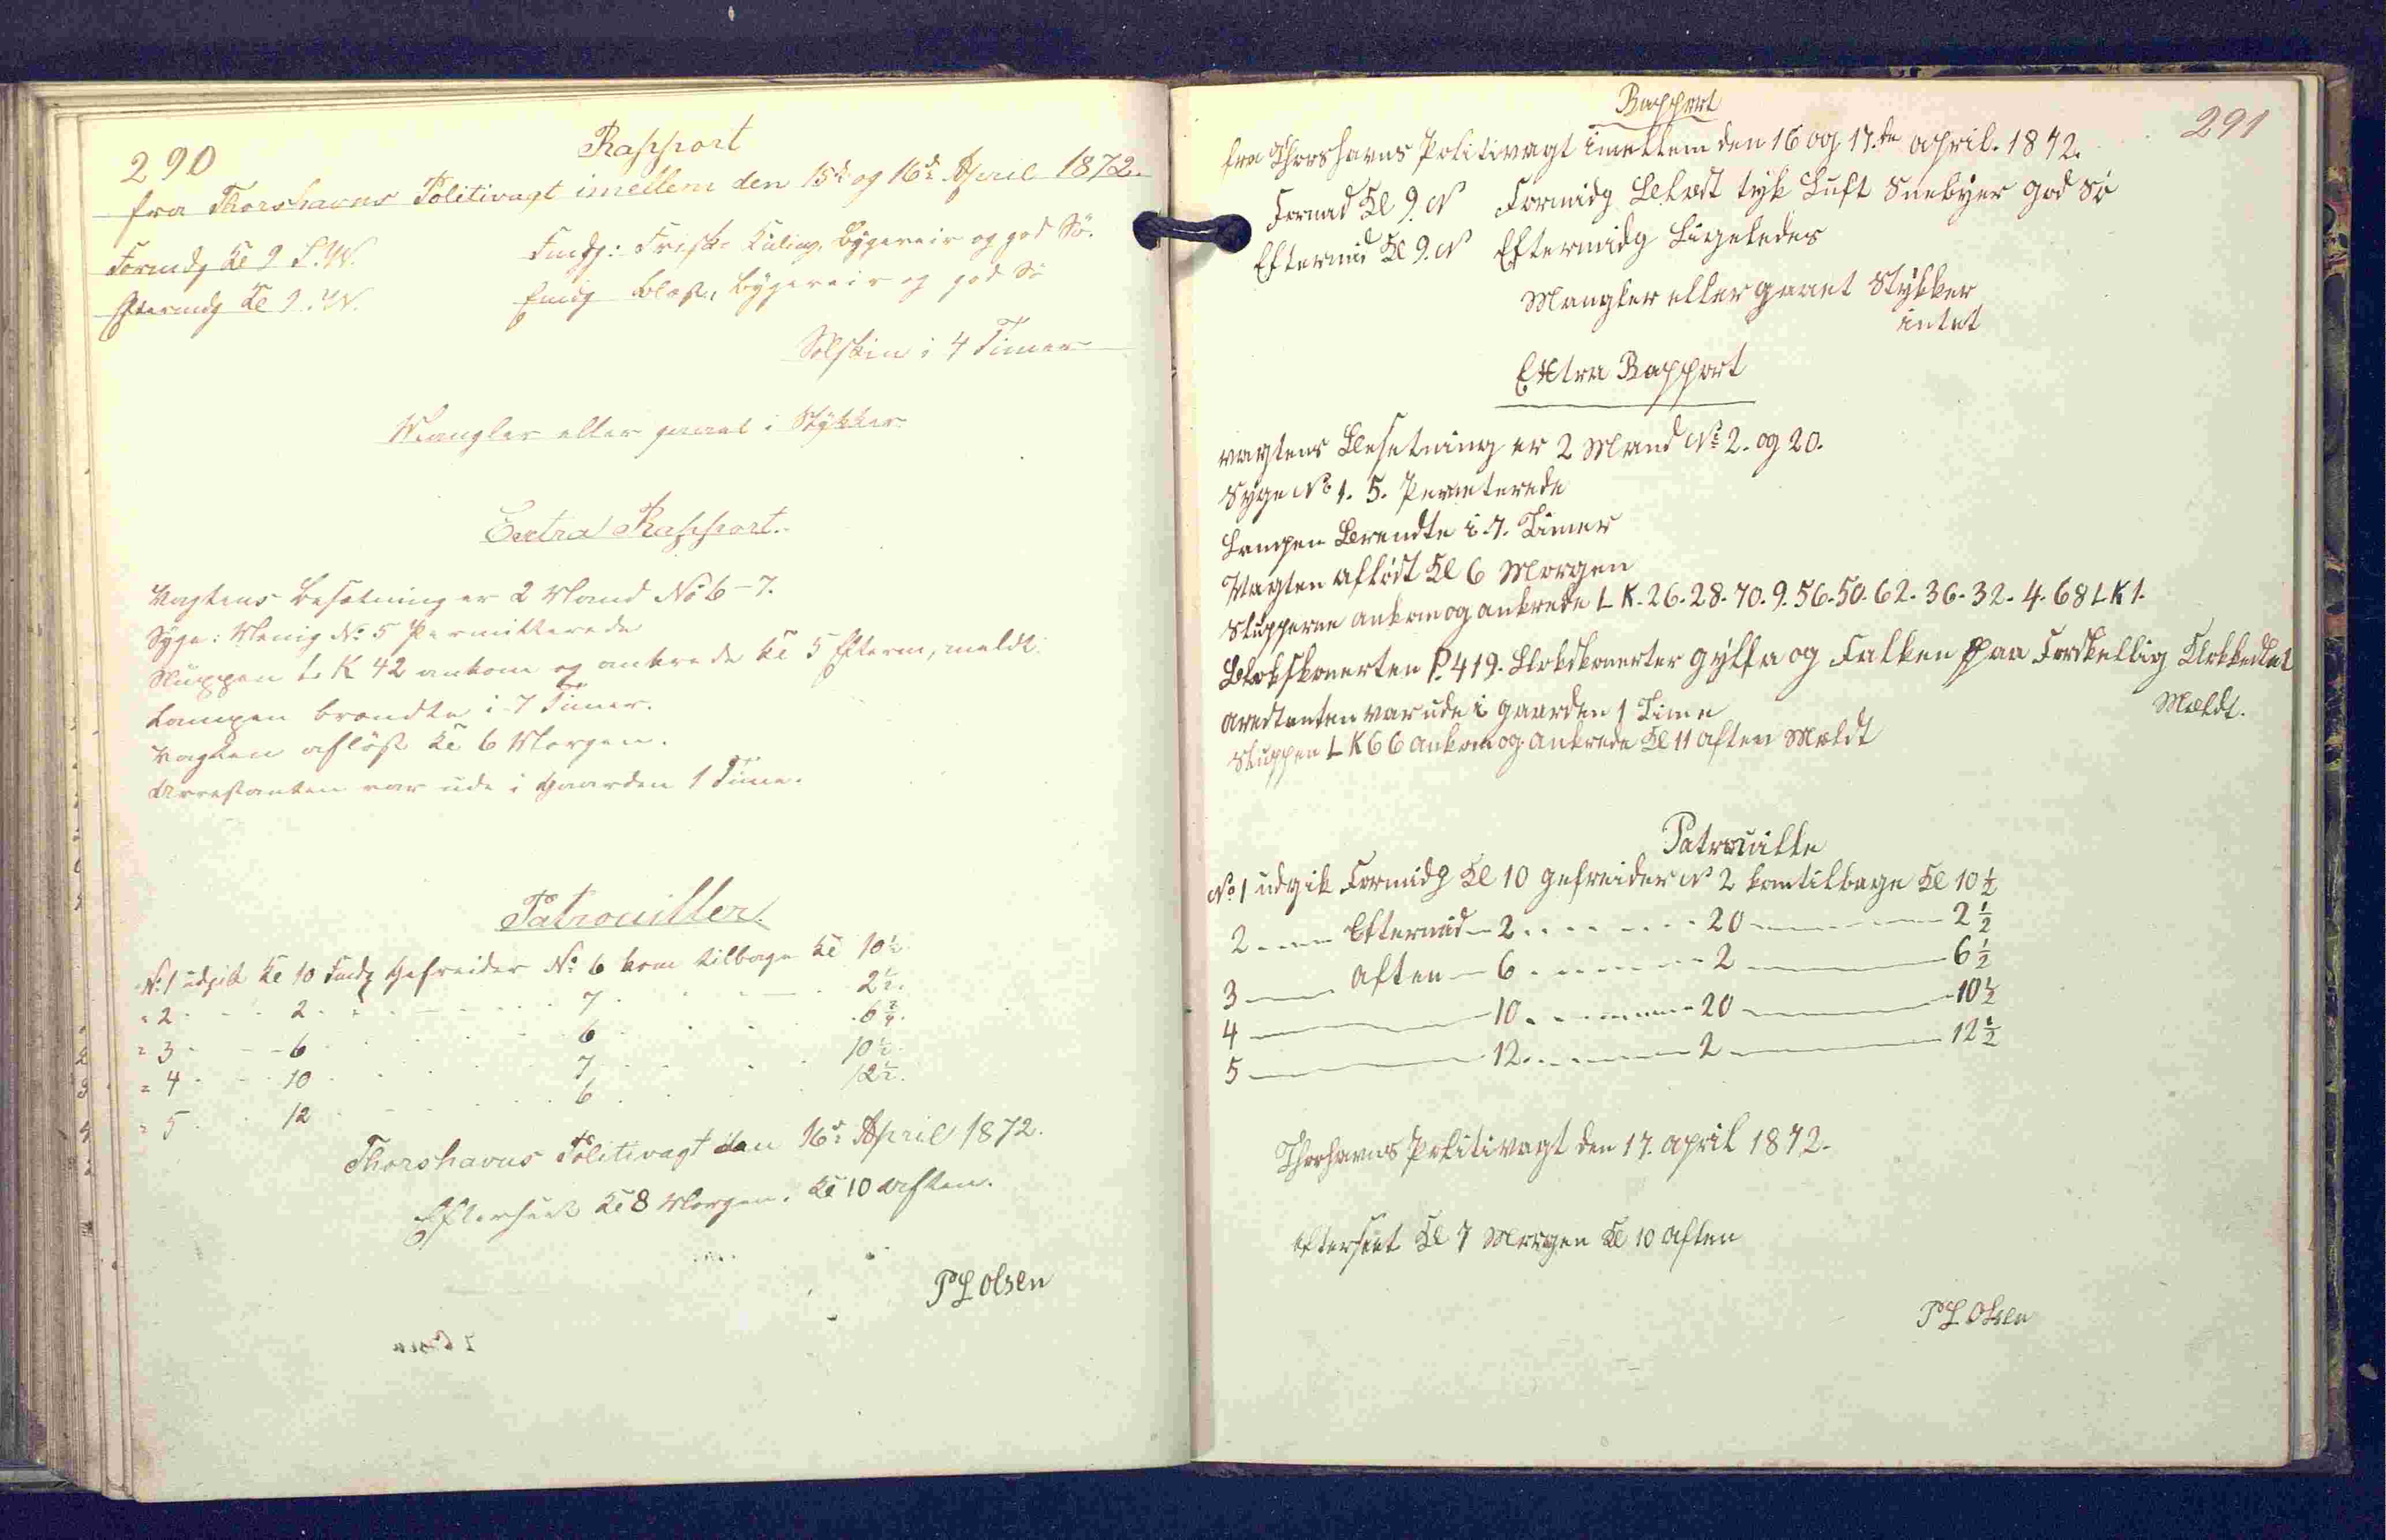 290
Rapport
fra Thorshavns Politivagt imellem den 15de og 16de April 1872.
Formdg Kl 9 S.W. Fmdg: Frisk Kuling, Bygeveir og god Sö.
Eftermdg Kl 9. W. Emdg Blæst, Bygeveir og god Sö
Solskin i 4 Timer
Mangler eller gaaet i Stykker
Extra Rapport.
Vagtens Besætning er 2 Mand No 6-7.
Syge: Menig No 5 Permitterede
Sluppen L K 42 ankom og ankrede Kl 5 Efterm, meldt.
Lampen brændte i 7 Timer.
Vagten aflöst Kl 6 Morgen.
Arrestanten var ude i Gaarden 1 Time.
Patrouiller.
No 1 udgik Kl 10 Fmdg Gefreider No 6 kom tilbage Kl 10½
" 2 2 7 2½.
" 3 6 6 6¾.
" 4 10 7 10½
" 5 12 6 12½.
Thorshavns Politivagt den 16de April 1872.
Efterseet Kl 8 Morgen. Kl 10 Aften.
P L Olsen
291
Rapport
fra Thorshavns Politivagt imellem den 16 og 17.de april. 1872.
Formad Kl 9. N Formidg Blæst tyk Luft Snebyer god Sö
Eftermid Kl 9. N Eftermidg Ligeledes
Mangler eller gaaet Stykker
intet
Extra Rapport
vagtens Besetning er 2 Mand No 2. og 20.
Syge No 1. 5. Permterede
Lampen Brendte i 7. Timer
Vagten aflöst Kl 6 Morgen
Slupperne ankom og ankrede L K. 26. 28. 70. 9. 56. 50. 62. 36. 32. 4. 68 L K 1.
Blokskonerten P. 419. Slokskonerter Gylfa og Falken Paa Forskellig Klokkeslet
Meldt.
arestanten var ude i gaarden 1 Time
Sluppen L K 66 ankom og ankrede Kl 11 aften Meldt
Patrouille
No 1 udgik Formidg Kl 10 gefreider N 2 kom tilbage Kl 10½
2 Eftermid 2 20 2½
3 aften 6 2 6½
4 10 20 10½
5 12 2 12½
Thorhavns Politivagt den 17. april 1872.
efterseet Kl 7 Morgen Kl 10 aften
P L Olsen